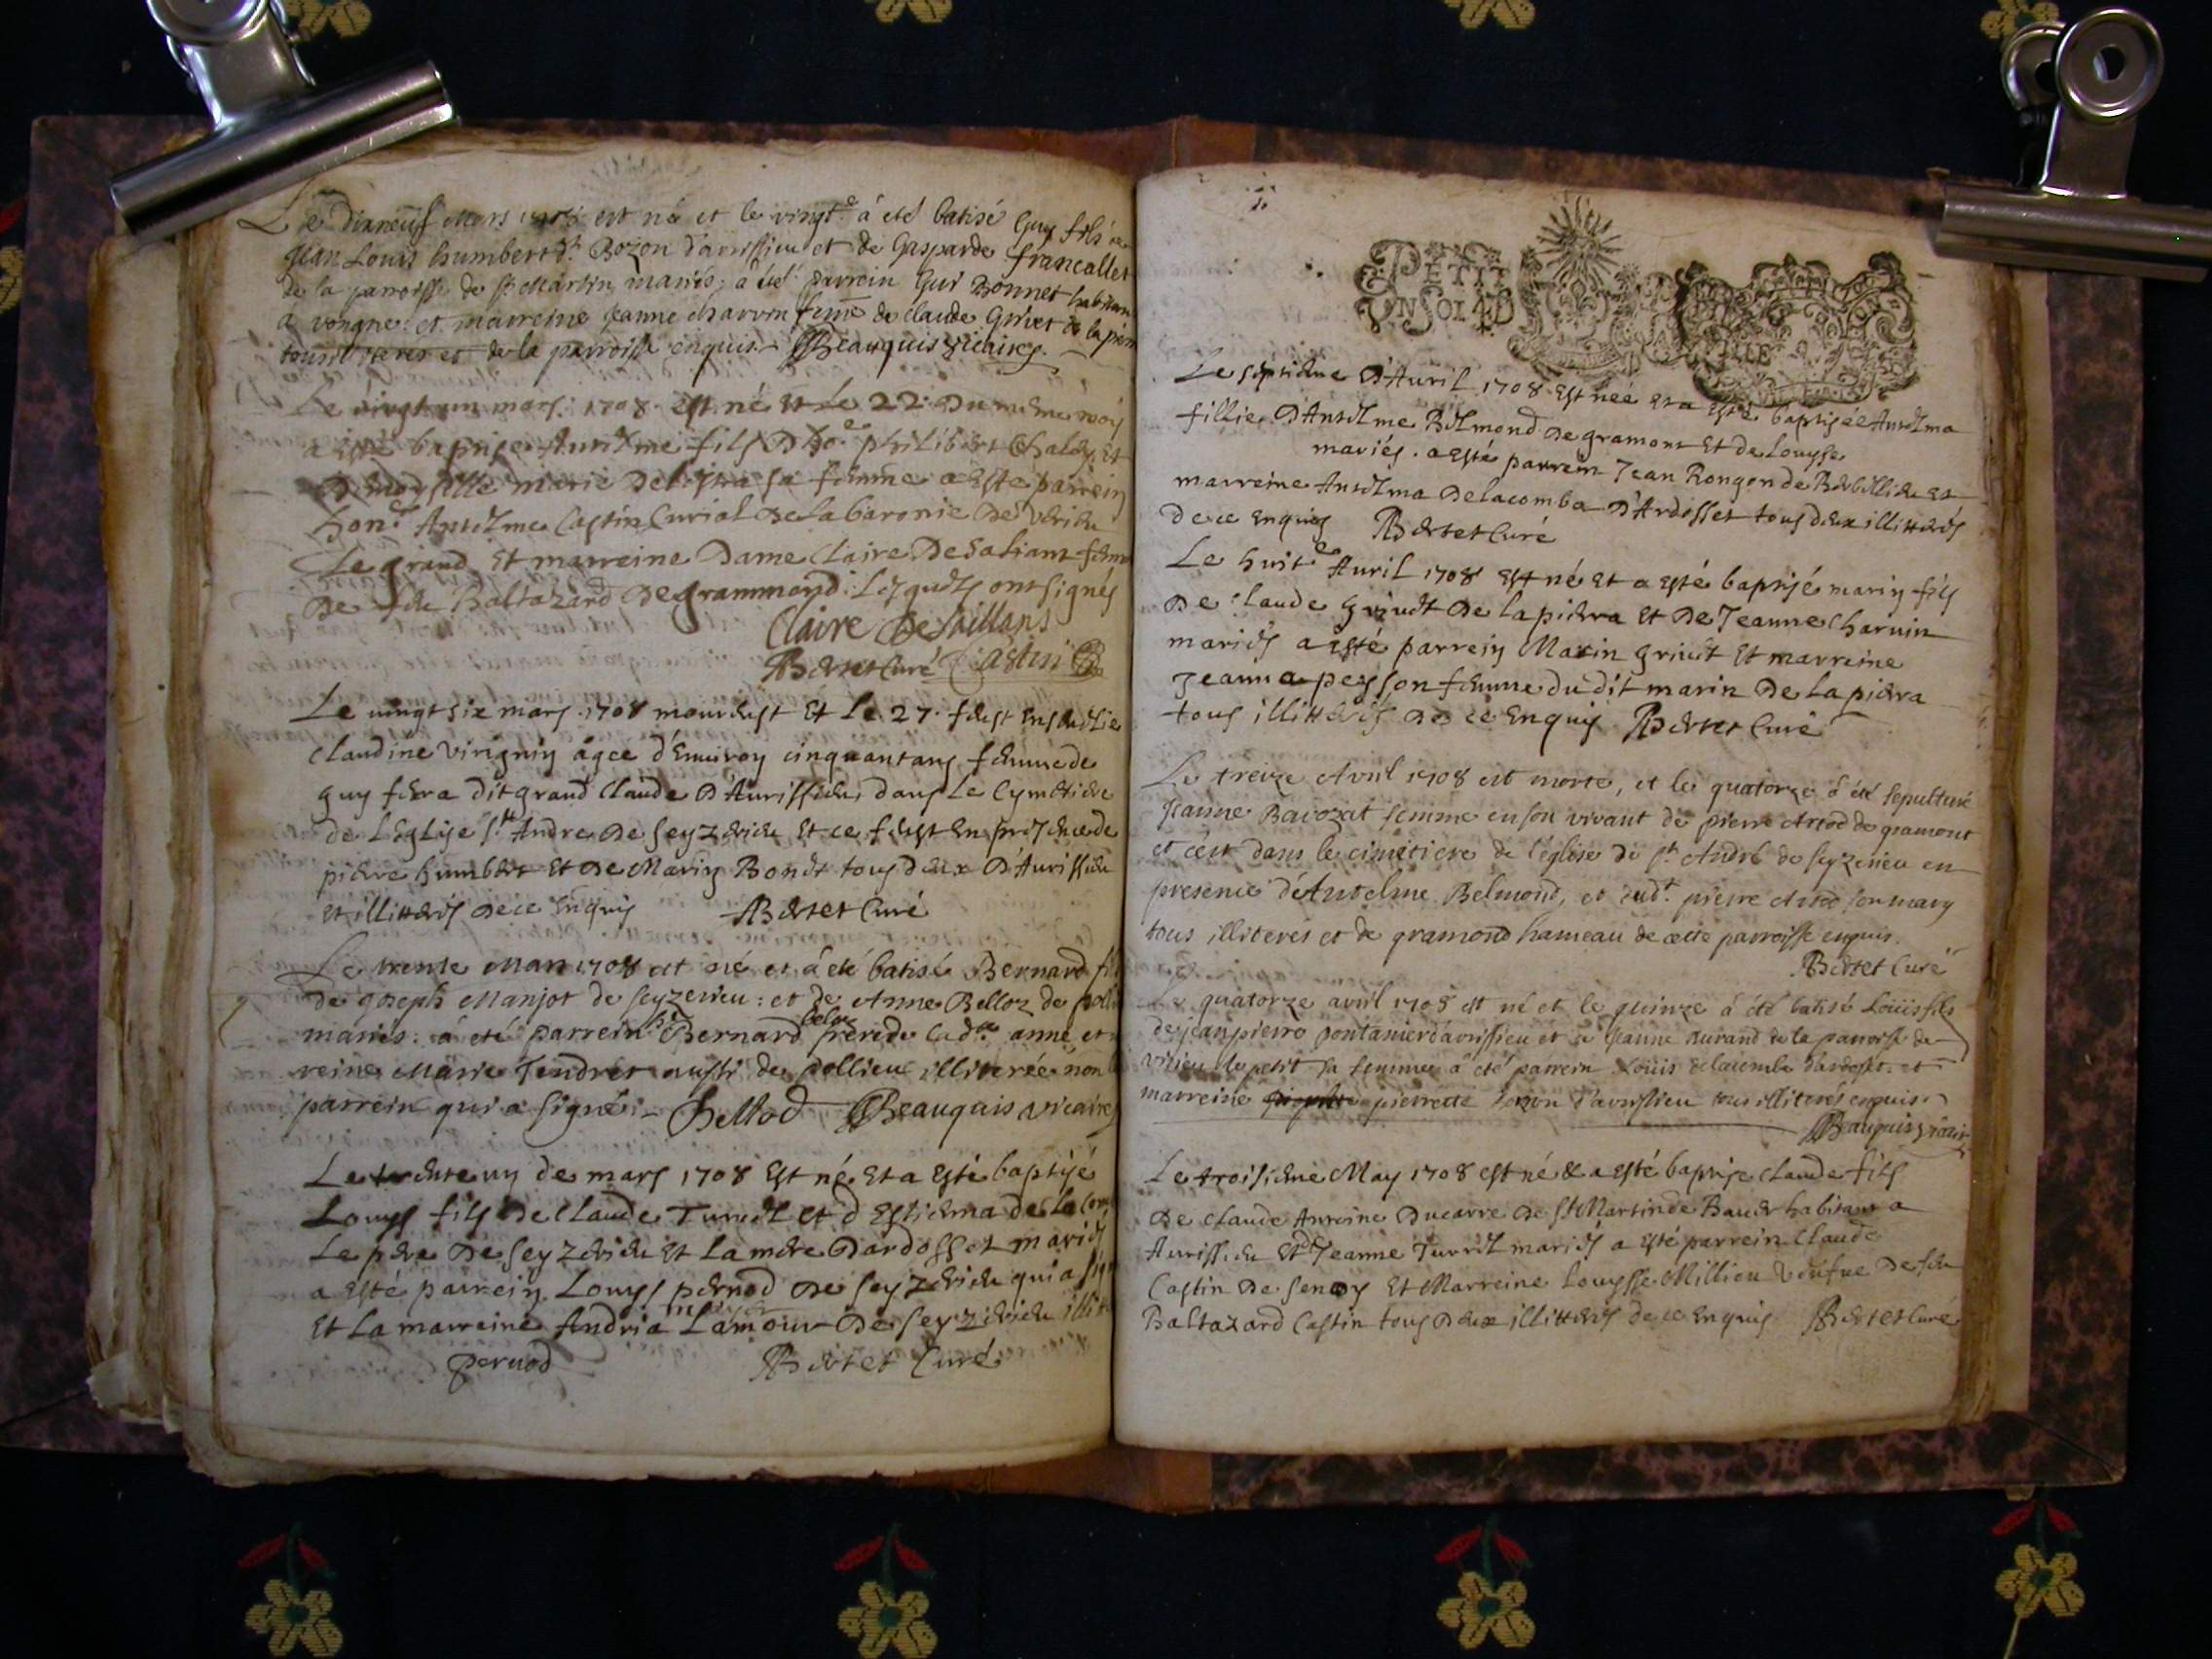 Le dixneuf mars 1708 est né et le vingt.e á eté batisé Guy fils de
Jean Louis humbert dt. Bozon d'avrissieu et de Gasparde francallet
de la parroisse de st Martin mariés; a été parrein Gui Bonnet habitant
a vongne: et marreine jeanne charvin feme de claude Grivet de la pierr
tous illiteres et de la parroisse enquis. Beauquis vicaire.
Le vingt un mars 1708 est né et Le 22. du meme moy
a esté baptise Antelme fils D'ho.e philibert Chaley et
Demoyselle marie De sa femme a esté parrein
hon.e Antelme Castin Curial De La baronie De virieu
Le grand et marreine Dame Claire De Saliant femme
De feu Baltazard De grammond: Lesquels ont signés
Claire De Saillans
Bertet Curé Castin
Le vingt six mars 1708 mourust et Le 27. fust ensevelie
Claudine virignin agée d'Environ cinquantans femme de
guy ferra dit grand Claude D'Avrissieu, dans Le Cymetiere
de L'Eglise st Andre De Seyzerieu et ce fust en presence de
pierre humbert et De Marin Bonet tous deux D'Avrissieu
et illitterés De ce enquis Bertet Curé
Le trente Mars 1708 est né et á eté batisé Bernard fi
de joseph Manjot de seyzerieu: et de Anne Belloz de polli
mariés: á eté parrein: sr. Bernard beloz frere de lad.e anne, et
reine Marie Tendret aussi de pollieu illiterée non l
parrein qui a signé:- Bellod Beauquis vicaire
Le trente un de mars 1708 est né et a esté baptisé
Louys fils De Claude Turrel et d'Estiema de La Com
Le pere De Seyzerieu et La mere Dardosset mariés
a esté parrein Louys pernod De Seyzerieu qui a sig
et La marreine Andria Lamour De Seyzerieu illitt
pernod Bertet Curé
PETIT
UN SOL 4 D
Le septieme D'Avril 1708 est née et a esté baptisée Antelma
fillie D'Antelme Belmond De gramont et de Louyse
mariés. a esté parrein Jean Rongon de Rebellieu et
marreine Antelma Delacomba D'Ardosset tous deux illitterés
de ce enquis Bertet Curé
Le huit.e Avril 1708 est né et a esté baptisé marin fils
De Claude grivet De la pierra et De Jeanne Charvin
mariés a esté parrein Marin grivet et marreine
Jeanna peysson femme du dit marin De La pierra
tous illitterés De ce enquis Bertet Curé
Le treize Avril 1708 est morte, et le quatorze á été sepulturé
Jeanne Bavozat femme en son vivant de pierre Ariod de gramont
et cést dans le cimetiere de l'église de st André de seyzerieu en
presence d'Antelme Belmond, et dudt. pierre Ariod son mary
tous illiteres et de gramond hameau de cette parroisse enquis.
Bertet Curé
Le quatorze avril 1708 est né et le quinze á été batisé Loüis fils
de jean pierre pontanier d'avrissieu et de Jeanne Aurand de la parroisse de
virieu le petit sa femme á été parrein Loüis delacombe dardosset. et
marreine pierrette bozon d'avrissieu tous illiterés enquis.
Beauquis vicaire
Le troisieme May 1708 est né & a esté baptise Claude fils
De Claude Antoine Ducarre De St Martin de Bavel habitant a
Avrissieu et d'Jeanne Turrel mariés a esté parrein Claude
Castin De Senoy et Marreine Louysse Millieu veufve De feu
Baltazard Castin tous Deux illitterés de ce enquis Bertet Curé